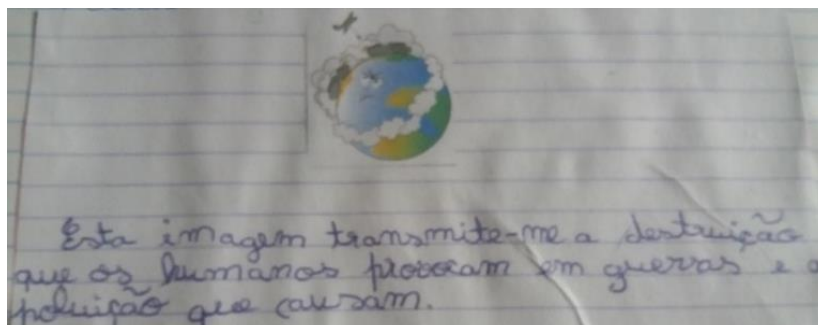 Esta imagem transmite-me a destruição
que os humanos provocam em guerras e a
poluição que causam.